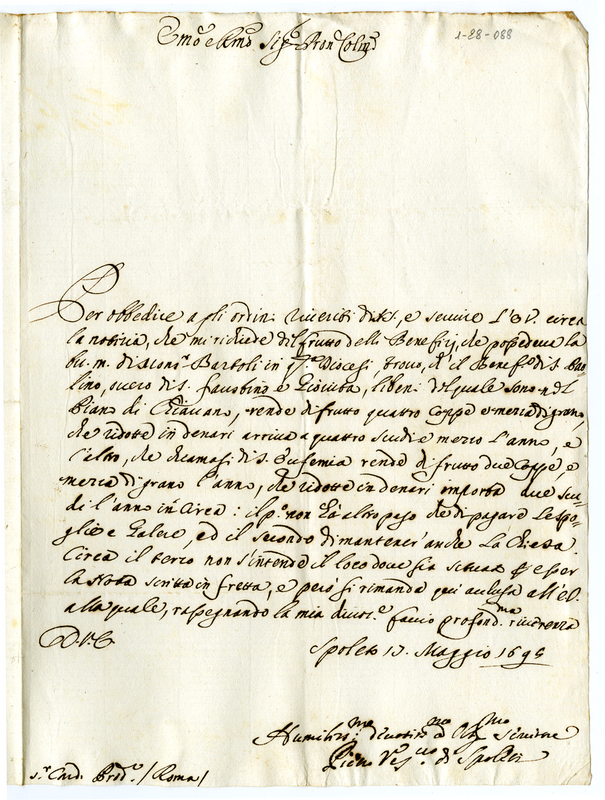 Em.o e R.mo Sig.r Pron Col.mo
1-28-088
Per obbedire agli ordini riveriti di S., e servire l'E.V. circa
la notizia, che mi richiede del frutto delli Benefizij, che possedeva la
bu. m. di Mons.r Bartoli in q.ta Diocesi, trovo, ch'il Benef.o di S. Pao
lino, overo di S. Faustino e Giovita, li beni del quale sono nel
Piano di Chiavano, rende di frutto quattro Coppe e meza di grano,
che ridotte in denari arriva a quattro scudi e mezzo l'anno, e
l'altro, che chiamasi di S. Eufemia rende di frutto due Coppe, e
meza di grano l'anno, che ridotte in denari importa due scu
di l'anno in Circa: il p.o non ha altro peso che di pagare le spo
glie e Galere, ed il secondo di mantener'anche la Chiesa.
Circa il terzo non s'intende il loco dove sia situato p esser
la Nota scritta in fretta, e però si rimanda qui acclusa all'E.V.
alla quale, rassegnando la mia divot.e faccio profond.ma riverenza
D.V.E.
Spoleto 13. Maggio 1695
Humiliss.mo devotiss.mo ed Obl.mo Servitore
Vescovo di Spoleti
S.r Card. Prod.o / Roma /